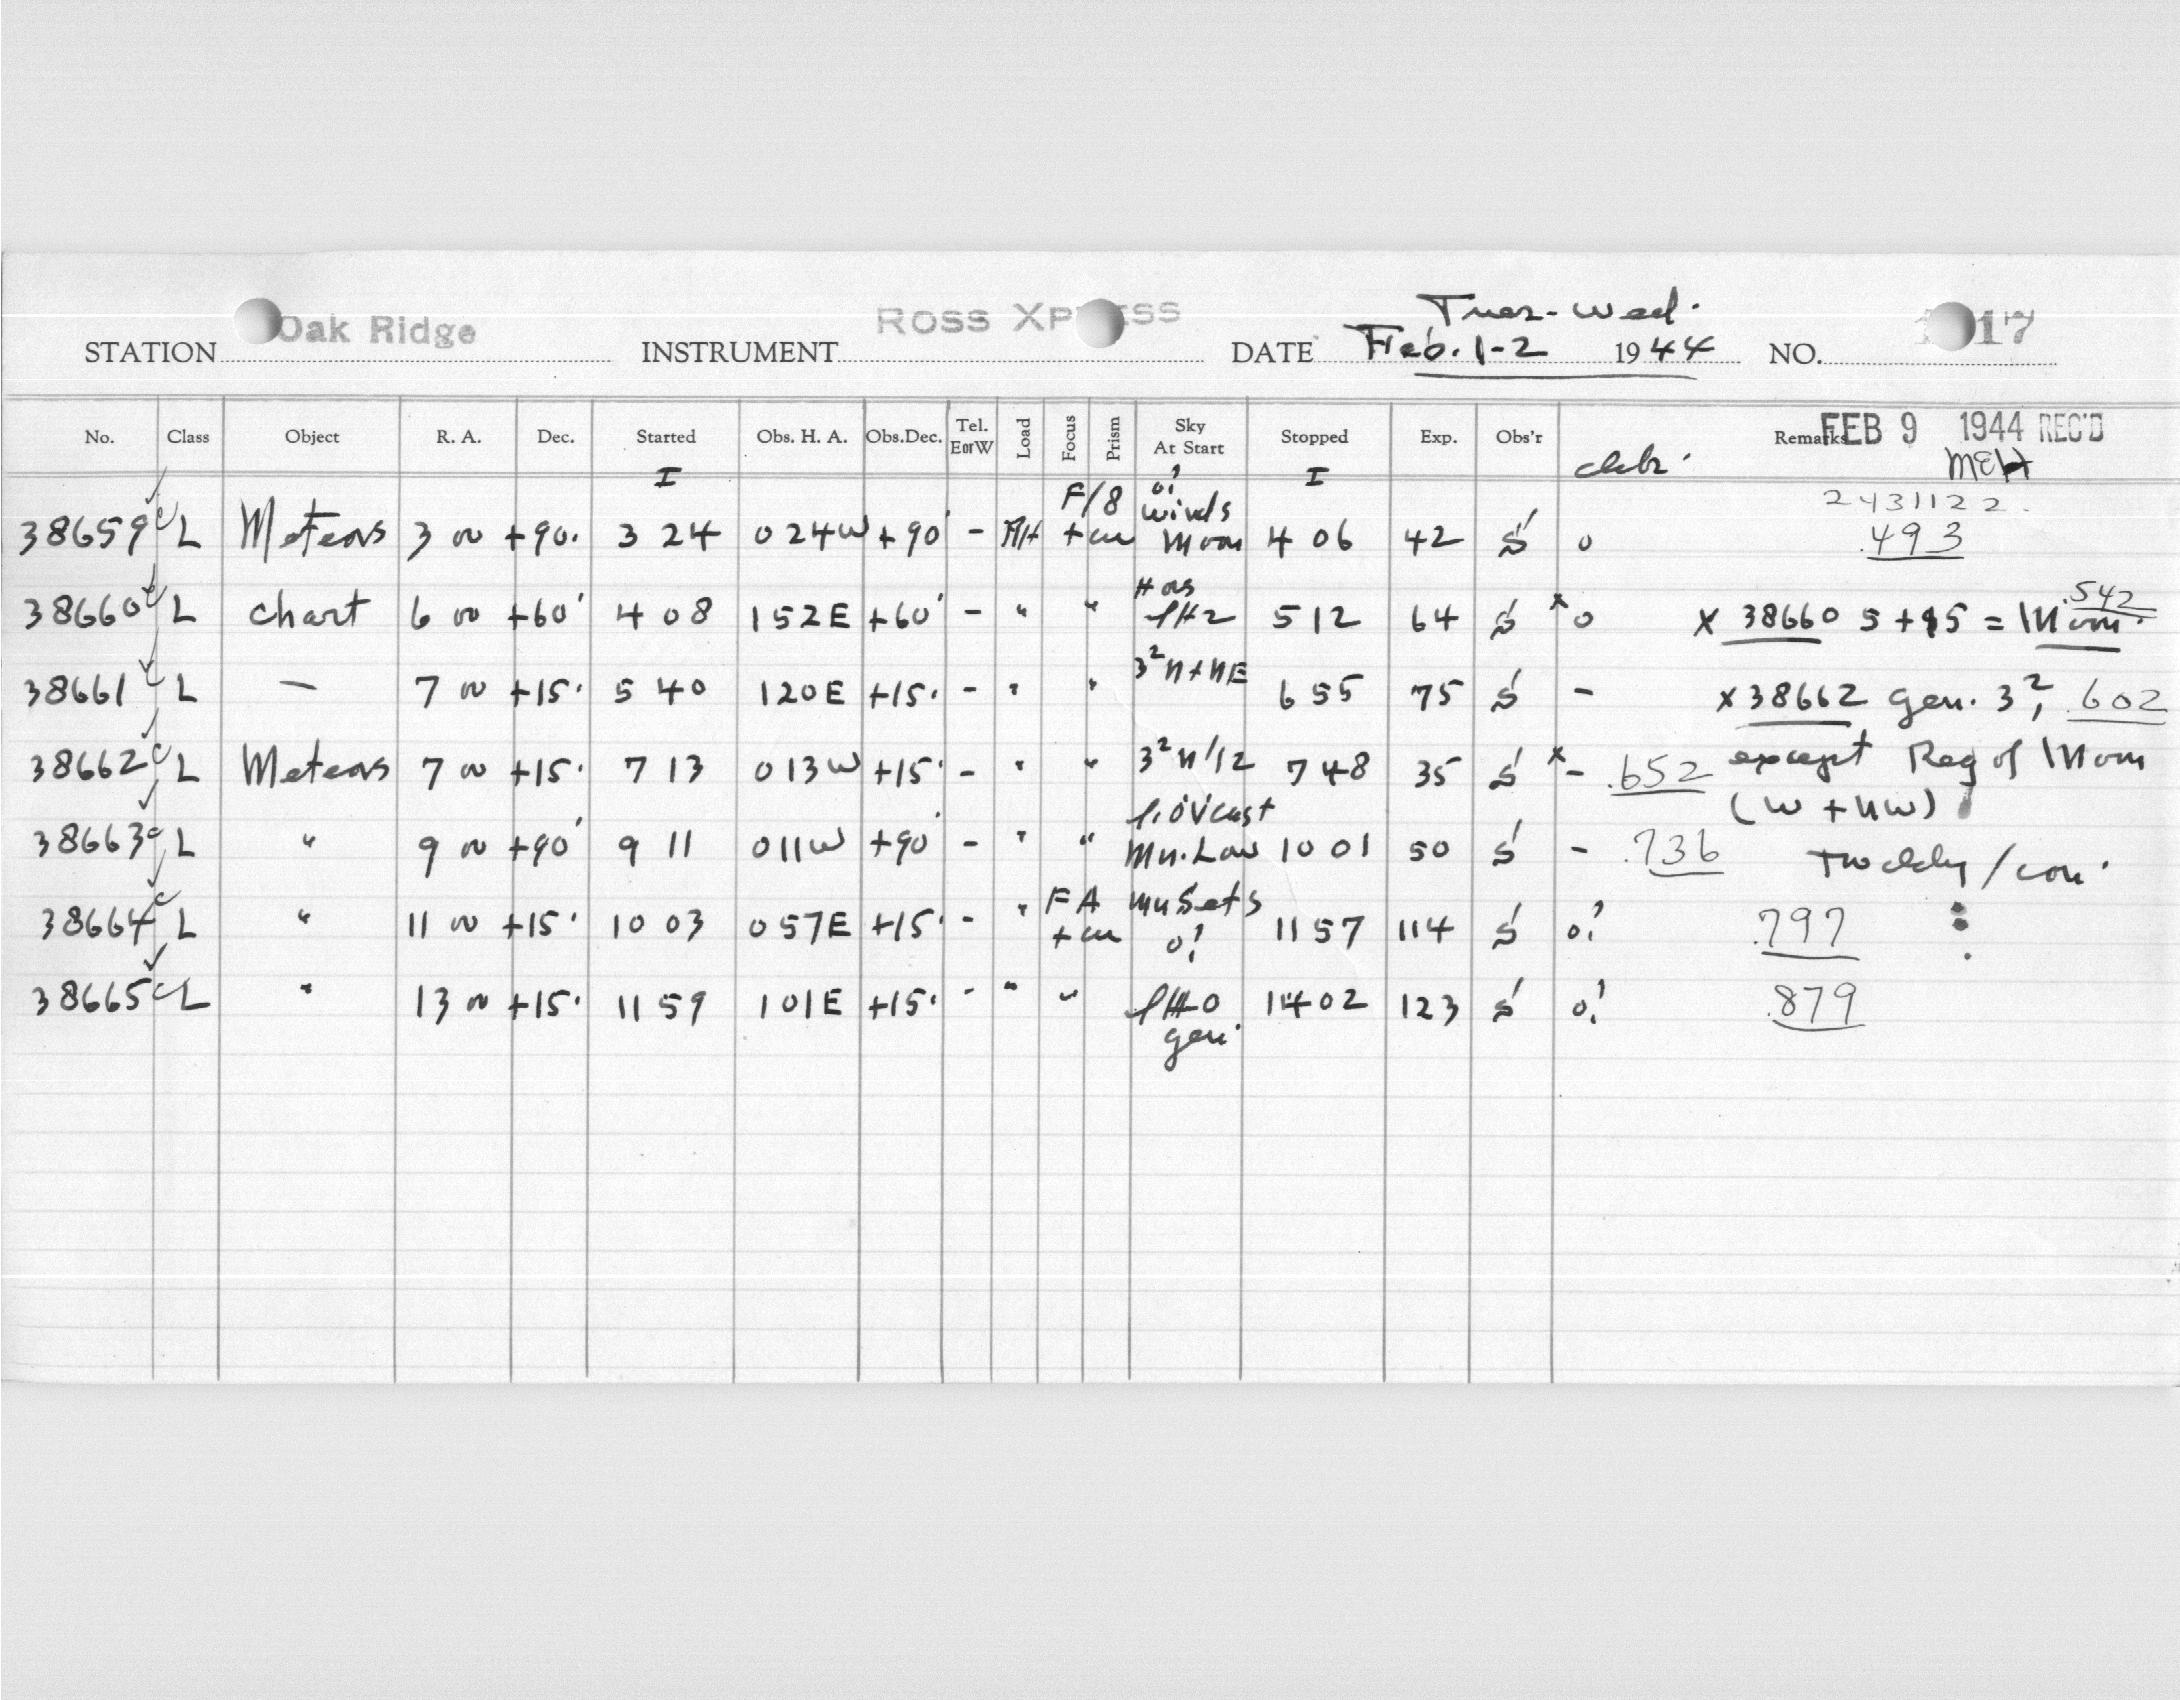 STATION Oak Ridge INSTRUMENT ROSS XPRESS DATE Tues-Wed. Feb. 1-2 1944 NO. 17
No. Class Object R. A. Dec. Started Obs. H. A. Obs.Dec. Tel. E or W Load Focus Prism Sky At Start Stopped Exp. Obs'r Remarks FEB 9 1944 REC'D
I I MEH
2431122.
38659 c L Meteors 3 00 +90. 3 24 0 24W +90 - F/8 o! Winds Moon 4 06 42 S o .493
38660 c L Chart 6 00 +60' 4 08 1 52E +60' - " " 5 12 64 S x o x 38660 S + 15 = Moon .542
38661 c L — 7 00 +15. 5 40 1 20E +15. - " " 3² N+NE 6 55 75 S - x 38662 gen. 3², .602
38662 c L Meteors 7 00 +15. 7 13 0 13W +15. - " " 3² N/12 7 48 35 S x - .652 except Reg of Moon
(W + NW)
38663 c L " 9 00 +90' 9 11 0 11W +90' - " " Mn. Low 10 01 50 S - .736
38664 c L " 11 00 +15. 10 03 0 57E +15. - " F A Mn Sets o! 11 57 114 S o! .797
38665 c L " 13 00 +15. 11 59 1 01E +15. - " " gen. 14 02 123 S o! .879